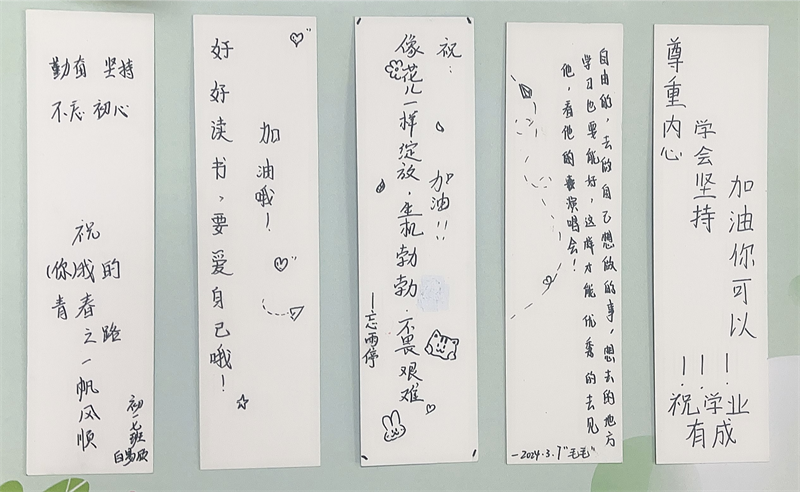 勤奋 坚持
不忘 初心
祝
(你)我的
青春
之路
一帆风顺
初一七班
好好读书，要爱自己哦！
加油哦！
祝：
像花儿一样绽放，生机勃勃，不畏艰难
加油！！
—忘雨停
自由的，去做自己想做的事，想去的地方
学习也要能好，这样才能优秀的去见
他，看他的演唱会！
—2024.3.7"毛毛"
尊重内心
学会坚持
加油你可以
！！！
祝学业
有成